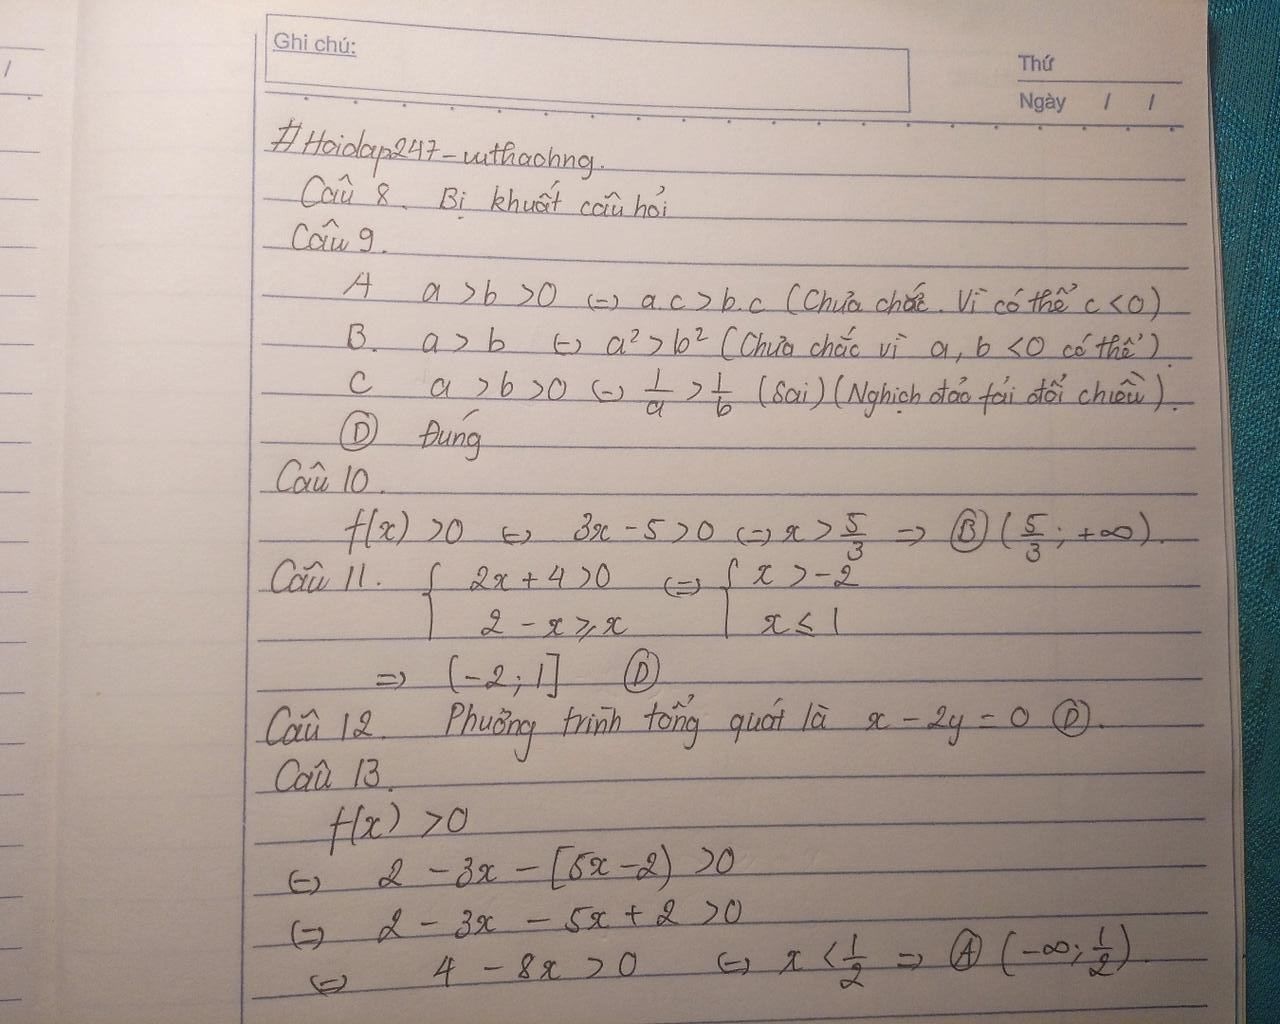 Ghi chú:
Thứ
Ngày / /
#Hoidap247-vuthaohng.
Câu 8. Bị khuất câu hỏi
Câu 9.
A a > b > 0 (=) a.c > b.c (Chưa chắc. Vì có thể c < 0)
B. a > b (=) a² > b² (Chưa chắc vì a, b < 0 có thể).
C a > b > 0 (=) 1/a > 1/b (Sai) (Nghịch đảo fải đổi chiều).
Ⓓ Đúng
Câu 10.
f(x) > 0 (=) 3x - 5 > 0 (=) x > 5/3 => Ⓑ (5/3; +∞).
Câu 11. { 2x + 4 > 0 (=) { x > -2
2 - x ⩾ x x ≤ 1
=> (-2; 1] Ⓓ
Câu 12. Phương trình tổng quát là x - 2y = 0 Ⓓ.
Câu 13.
f(x) > 0
(=) 2 - 3x - (5x - 2) > 0
(=) 2 - 3x - 5x + 2 > 0
(=) 4 - 8x > 0 (=) x < 1/2 => Ⓐ (-∞; 1/2).